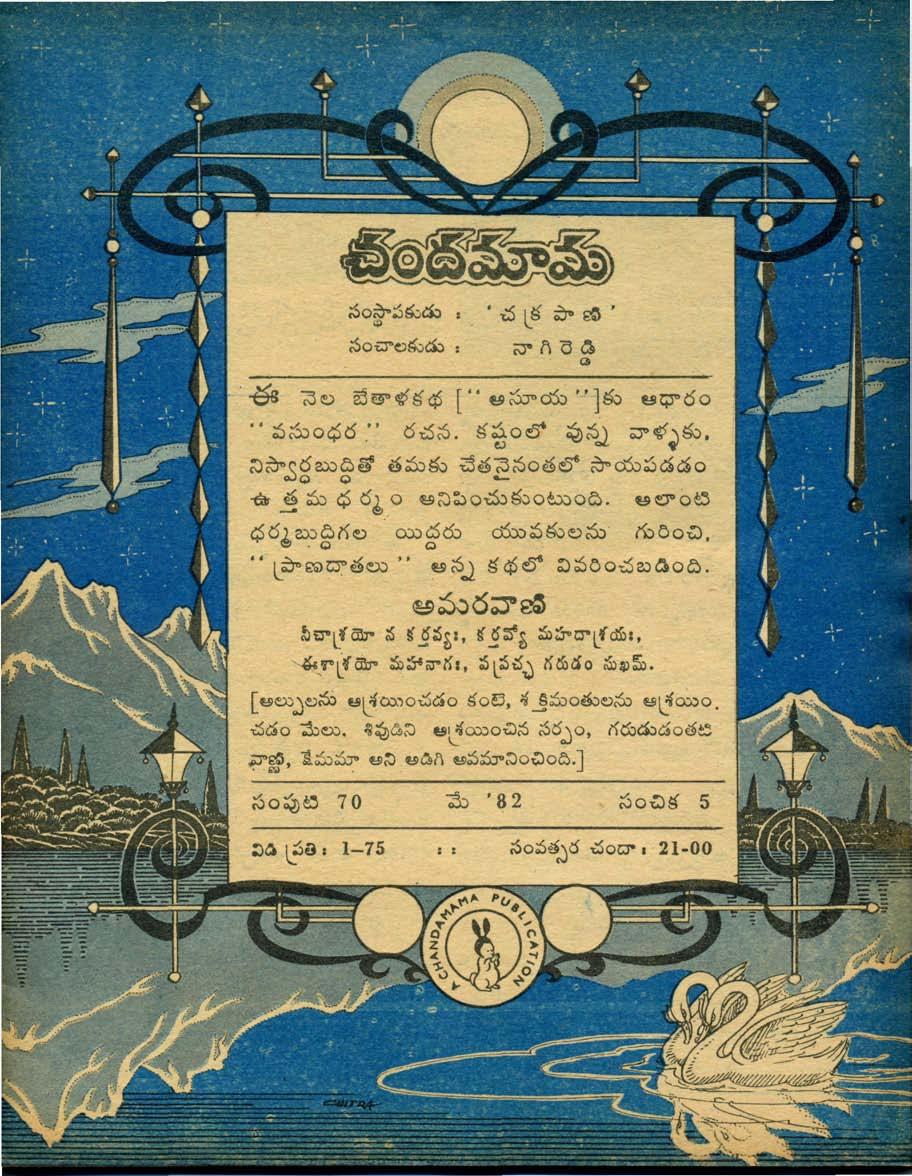 చందమామ
సంస్థాపకుడు : ' చక్రపాణి '
సంచాలకుడు : నాగిరెడ్డి
ఈ నెల బేతాళకథ ["అసూయ"]కు ఆధారం
"వసుంధర" రచన. కష్టంలో వున్న వాళ్ళకు,
నిస్వార్థబుద్ధితో తమకు చేతనైనంతలో సాయపడడం
ఉత్తమధర్మం అనిపించుకుంటుంది. అలాంటి
ధర్మబుద్ధిగల యిద్దరు యువకులను గురించి,
"ప్రాణదాతలు" అన్న కథలో వివరించబడింది.
అమరవాణి
నీచాశ్రయో న కర్తవ్యః, కర్తవ్యో మహదాశ్రయః,
ఈశాశ్రయో మహానాగః, పప్రచ్ఛ గరుడం సుఖమ్.
[అల్పులను ఆశ్రయించడం కంటె, శక్తిమంతులను ఆశ్రయిం
చడం మేలు. శివుడిని ఆశ్రయించిన సర్పం, గరుడుడంతటి
వాణ్ణి, క్షేమమా అని అడిగి అవమానించింది.]
సంపుటి 70 మే '82 సంచిక 5
విడి ప్రతి : 1-75 : : సంవత్సర చందా : 21-00
A CHANDAMAMA PUBLICATION
CHITRA